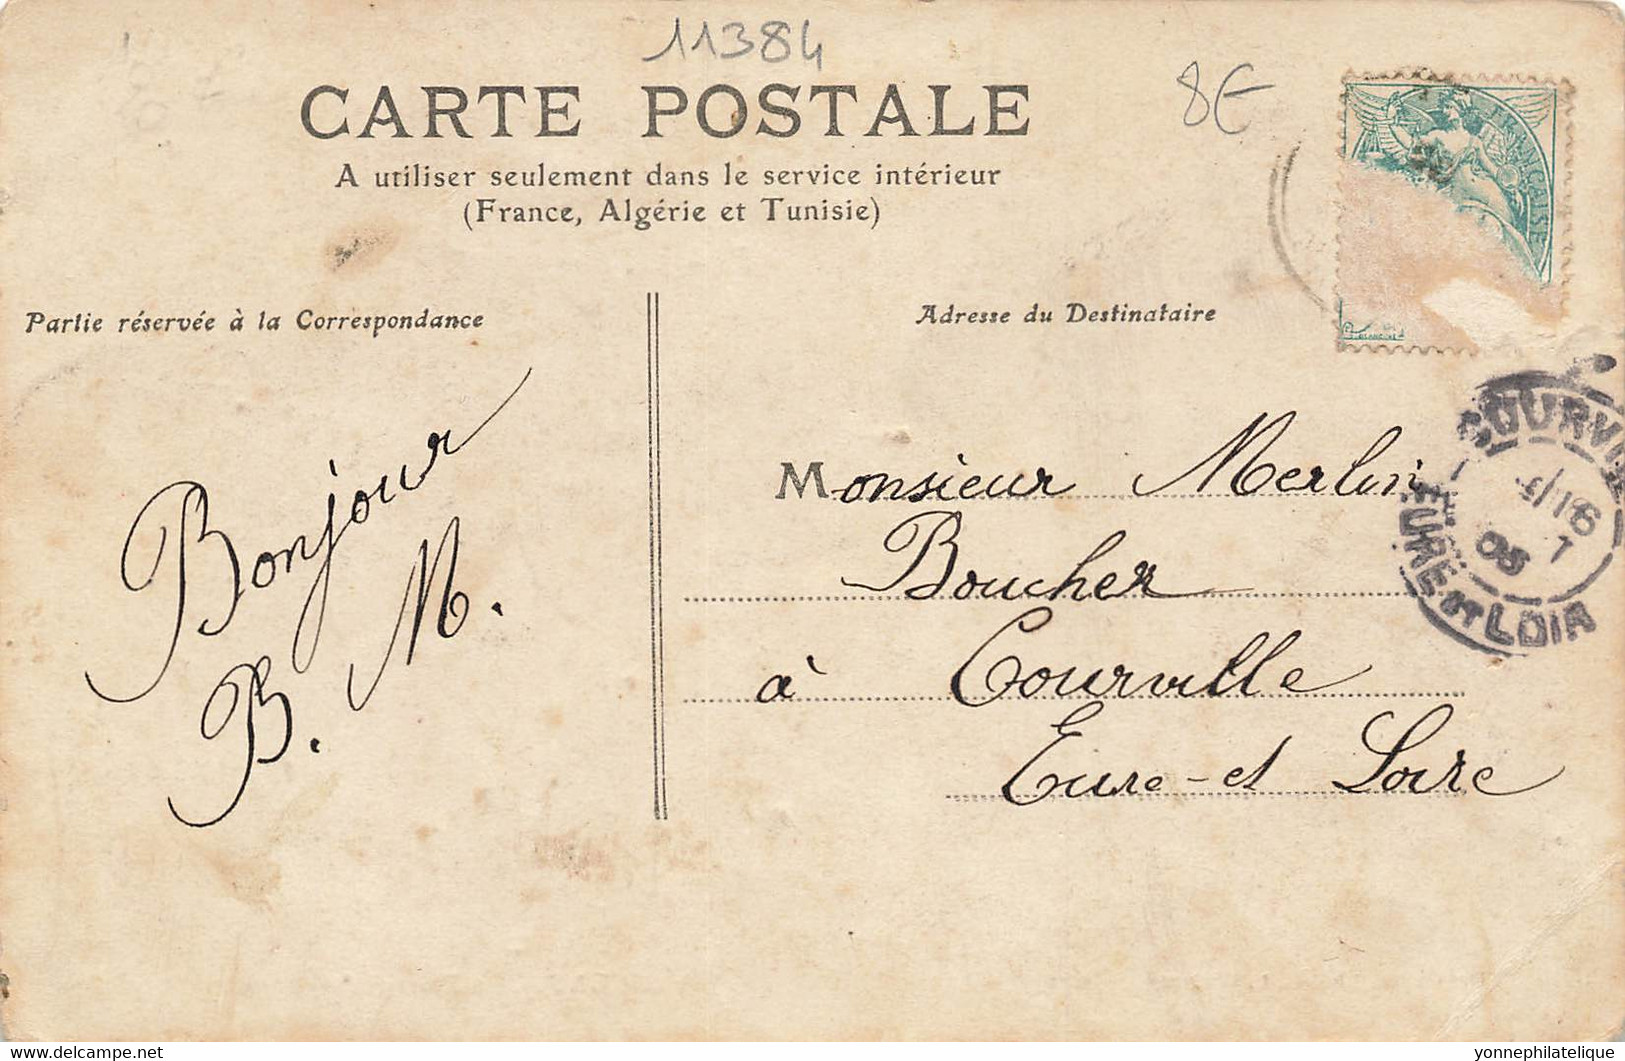 11384
8€
CARTE POSTALE
A utiliser seulement dans le service intérieur
(France, Algérie et Tunisie)
FRANÇAISE
Partie réservée à la Correspondance
Adresse du Destinataire
Bonjour
B. M.
Monsieur Merlin
Boucher
à Courville
Eure-et Loire
COURVILLE
16
7
05
EURE ET LOIR
www.delcampe.net
yonnephilatelique